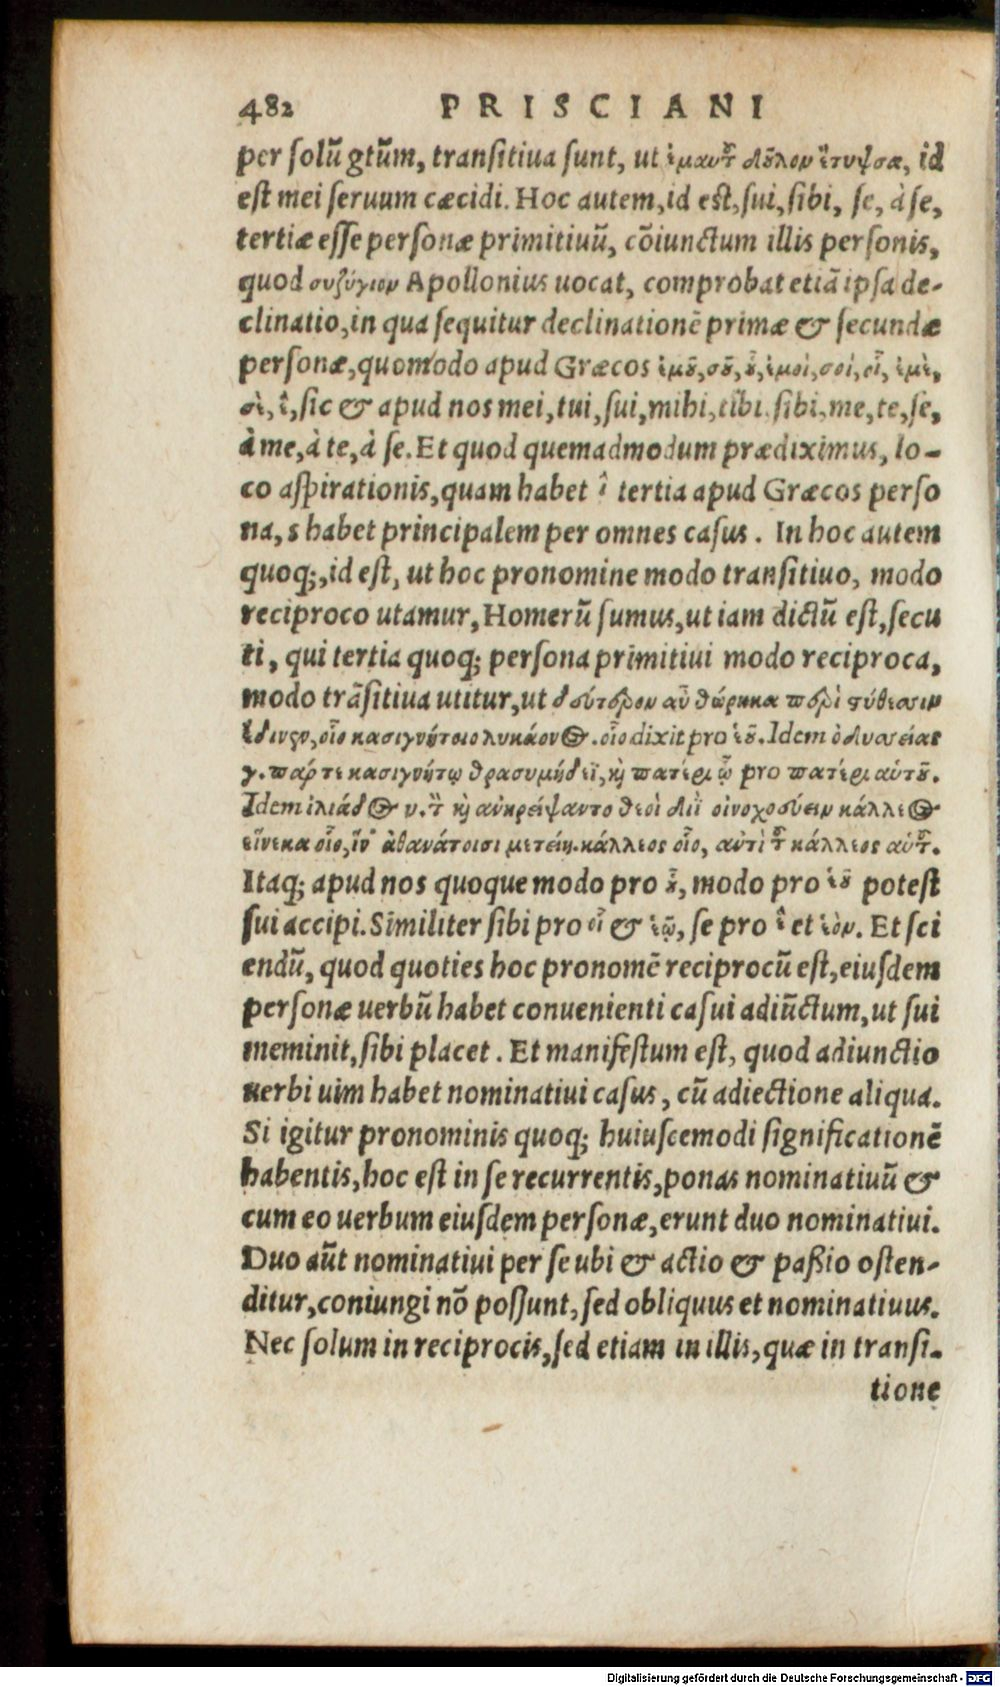 482 PRISCIANI
per ſolũ gtũm, tranſitiua ſunt, ut ἐμαυτοῦ δοῦλον ἔτυψα, id
eſt mei ſeruum cæcidi. Hoc autem, id eſt, ſui, ſibi, ſe, à ſe,
tertiæ eſſe perſonæ primitiuũ, cõiunctum illis perſonis,
quod συζύγιον Apollonius uocat, comprobat etiã ipſa de-
clinatio, in qua ſequitur declinationẽ primæ & ſecundæ
perſonæ, quomodo apud Græcos ἐμοῦ, σοῦ, οὗ, ἐμοὶ, σοὶ, οἷ, ἐμὲ,
σὲ, ἓ, ſic & apud nos mei, tui, ſui, mihi, tibi, ſibi, me, te, ſe,
à me, à te, à ſe. Et quod quemadmodum prædiximus, lo-
co aſpirationis, quam habet ἓ tertia apud Græcos perſo
na, s habet principalem per omnes caſus. In hoc autem
quoq;, id eſt, ut hoc pronomine modo tranſitiuo, modo
reciproco utamur, Homerũ ſumus, ut iam dictũ eſt, ſecu
ti, qui tertia quoq; perſona primitiui modo reciproca,
modo trãſitiua utitur, ut δεύτερον αὖ θώρηκα περὶ στήθεσσιν
ἔδυνεν, οἷο κασιγνήτοιο λυκάονος. οἷο dixit pro ἑοῦ. Idem ὀδυσσείας
γ. πάρ τε κασιγνήτῳ θρασυμήδεϊ, καὶ πατέρι ᾧ pro πατέρι αὑτοῦ.
Idem ἰλιάδος υ. τὸν καὶ ἀνηρείψαντο θεοὶ διῒ οἰνοχοεύειν κάλλεος
εἵνεκα οἷο, ἵν᾽ ἀθανάτοισι μετείη. κάλλεος οἷο, αὐτὶ τοῦ κάλλεος αὑτοῦ.
Itaq; apud nos quoque modo pro οὗ, modo pro ἑοῦ poteſt
ſui accipi. Similiter ſibi pro οἷ & ἑῷ, ſe pro ἓ et ἑὸν. Et ſci
endũ, quod quoties hoc pronomẽ reciprocũ eſt, eiuſdem
perſonæ uerbũ habet conuenienti caſui adiũctum, ut ſui
meminit, ſibi placet. Et manifeſtum eſt, quod adiunctio
uerbi uim habet nominatiui caſus, cũ adiectione aliqua.
Si igitur pronominis quoq; huiuſcemodi ſignificationẽ
habentis, hoc eſt in ſe recurrentis, ponas nominatiuũ &
cum eo uerbum eiuſdem perſonæ, erunt duo nominatiui.
Duo aũt nominatiui per ſe ubi & actio & paßio oſten-
ditur, coniungi nõ poſſunt, ſed obliquus et nominatiuus.
Nec ſolum in reciprocis, ſed etiam in illis, quæ in tranſi-
tione
Digitalisierung gefördert durch die Deutsche Forschungsgemeinschaft - DFG